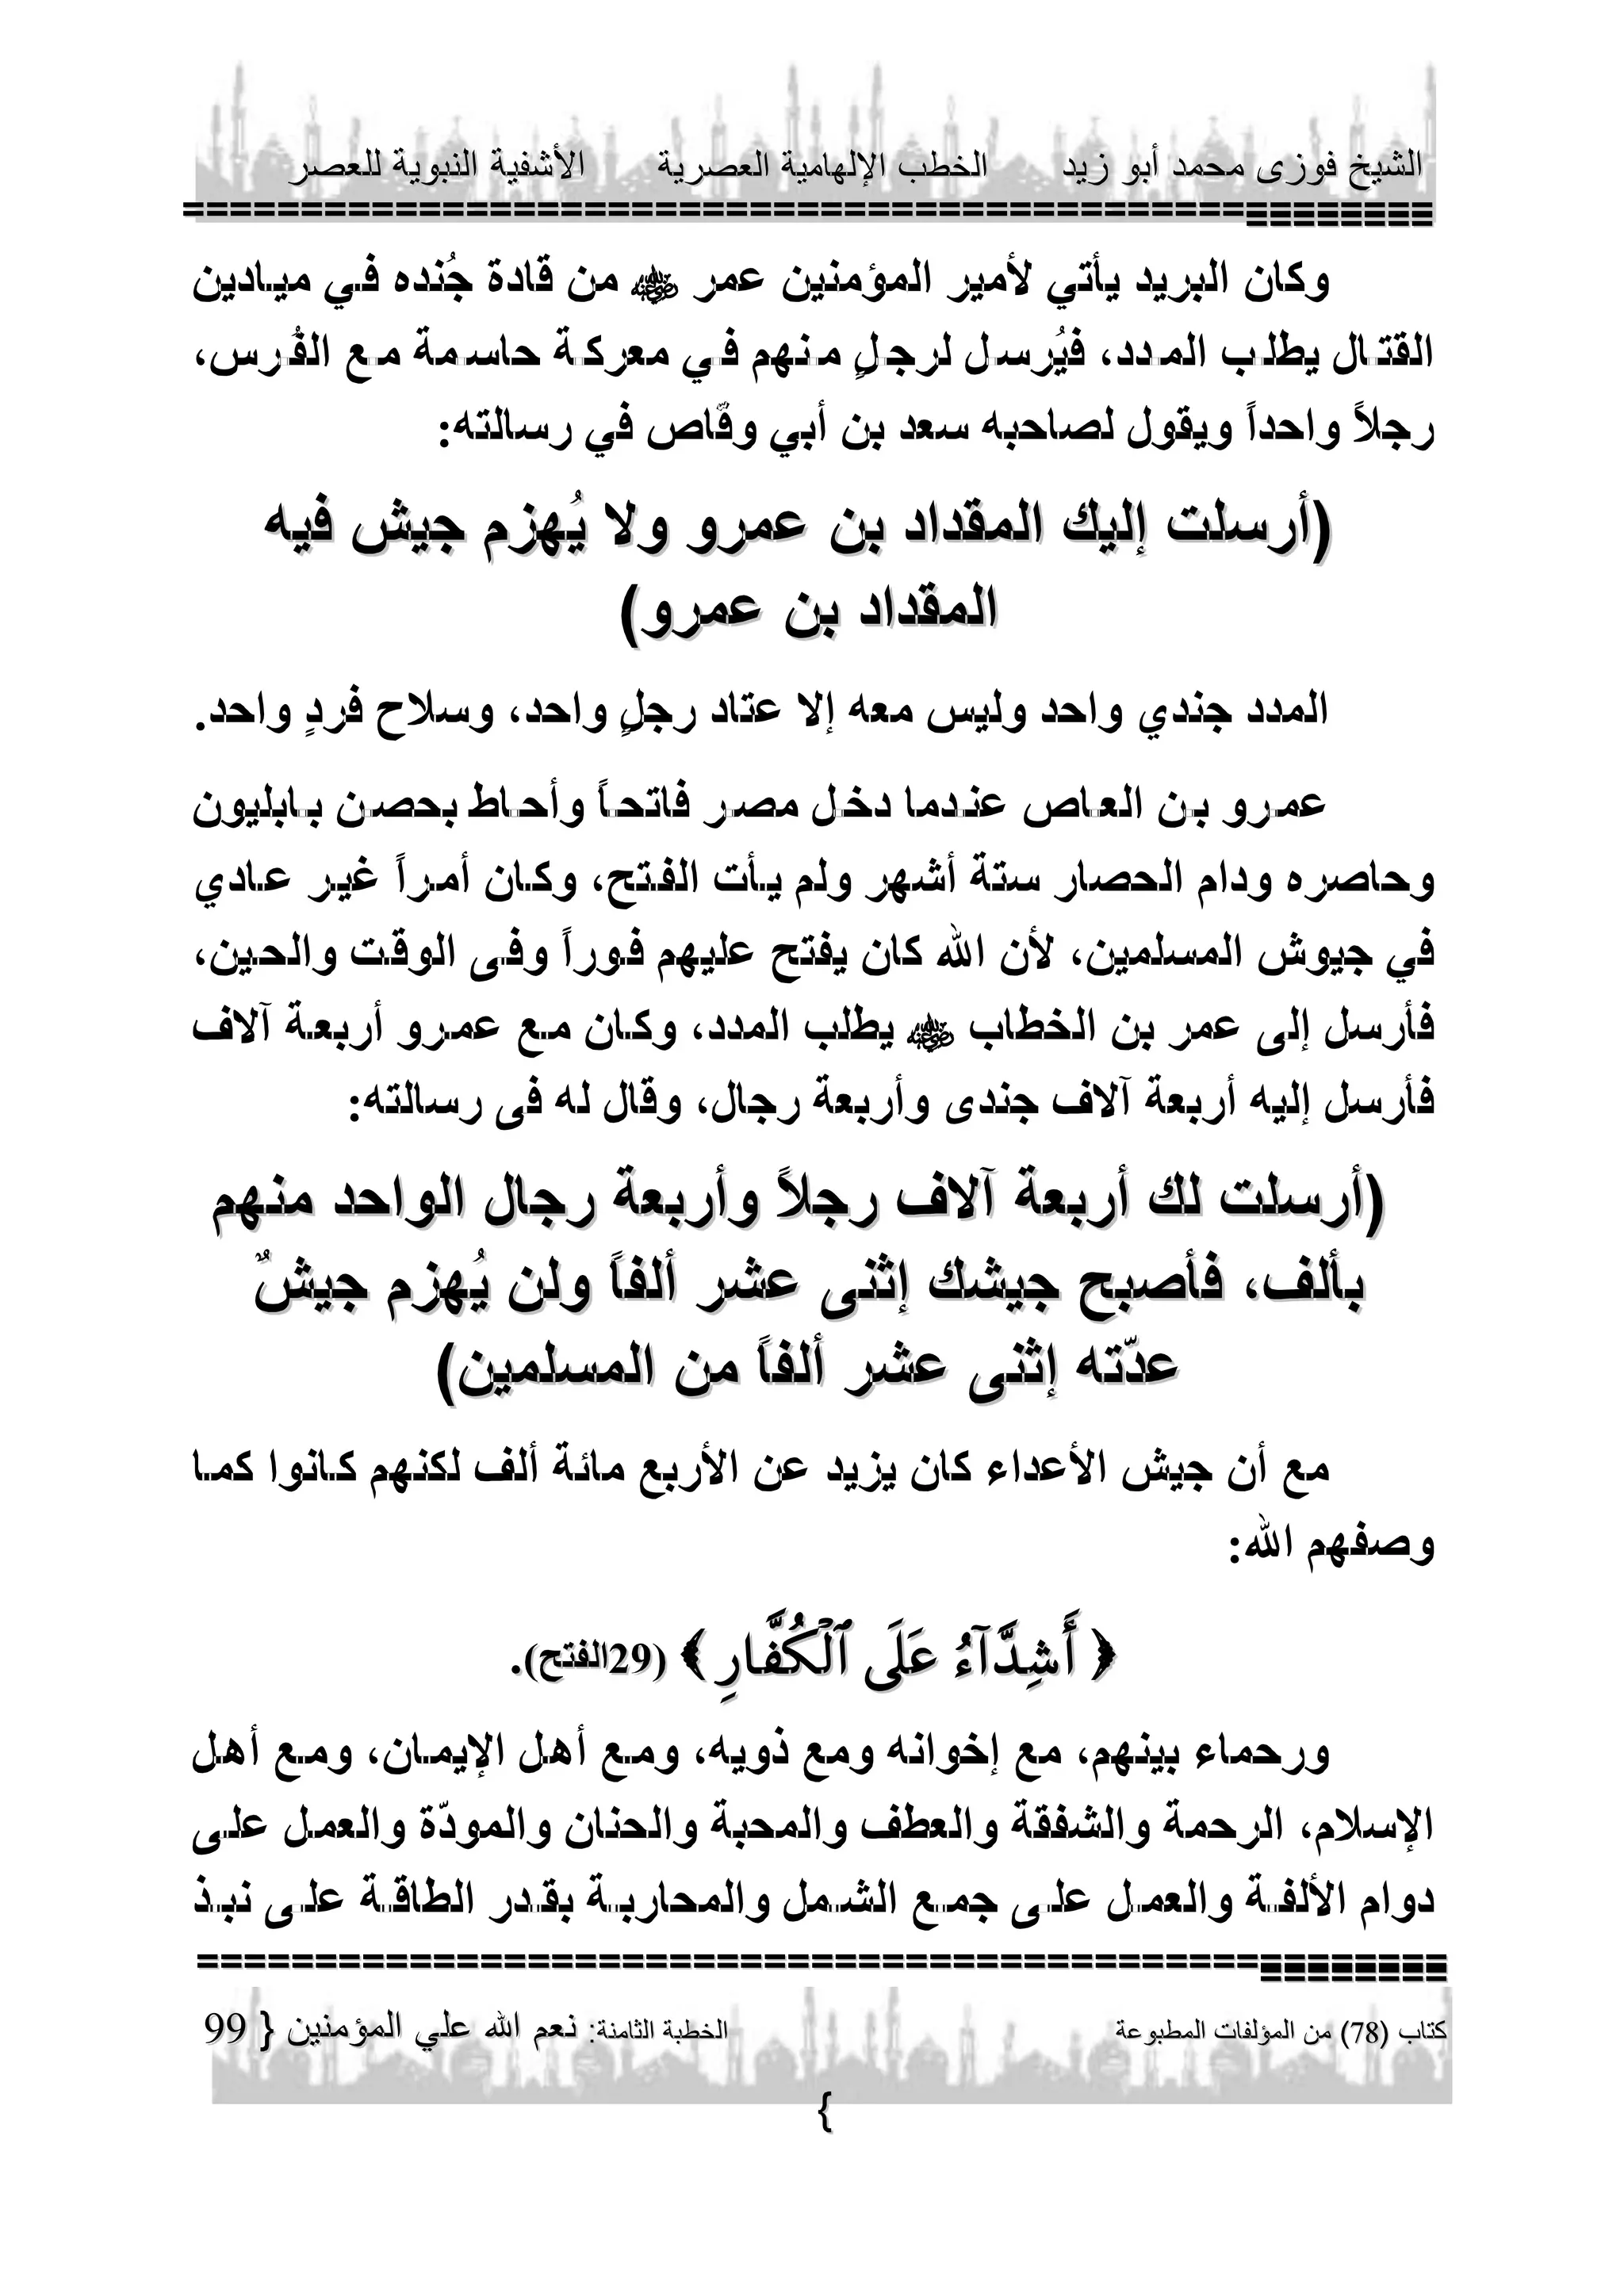 الشيخ فوزى محمد أبو زيد الخطب الإلهامية العصرية الأشفية النبوية للعصر
وكان البريد يأتي لأمير المؤمنين عمر ﵁ من قادة جُنده في ميادين
القتال يطلب المدد، فيُرسل لرجلٍ منهم في معركة حاسمة مع الفُرس،
رجلاً واحداً ويقول لصاحبه سعد بن أبي وقّاص في رسالته:
(أرسلت إليك المقداد بن عمرو ولا يُهزم جيش فيه
المقداد بن عمرو)
المدد جندي واحد وليس معه إلا عتاد رجلٍ واحد، وسلاح فردٍ واحد.
عمرو بن العاص عندما دخل مصر فاتحاً وأحاط بحصن بابليون
وحاصره ودام الحصار ستة أشهر ولم يأت الفتح، وكان أمراً غير عادي
في جيوش المسلمين، لأن الله كان يفتح عليهم فوراً وفى الوقت والحين،
فأرسل إلى عمر بن الخطاب ﵁ يطلب المدد، وكان مع عمرو أربعة آلاف
فأرسل إليه أربعة آلاف جندى وأربعة رجال، وقال له فى رسالته:
(أرسلت لك أربعة آلاف رجلاً وأربعة رجال الواحد منهم
بألف، فأصبح جيشك إثنى عشر ألفاً ولن يُهزم جيشٌ
عدّته إثنى عشر ألفاً من المسلمين)
مع أن جيش الأعداء كان يزيد عن الأربع مائة ألف لكنهم كانوا كما
وصفهم الله:
﴿ أَشِدَّآءُ عَلَى ٱلْكُفَّارِ ﴾ (29الفتح).
ورحماء بينهم، مع إخوانه ومع ذويه، ومع أهل الإيمان، ومع أهل
الإسلام، الرحمة والشفقة والعطف والمحبة والحنان والمودّة والعمل على
دوام الألفة والعمل على جمع الشمل والمحاربة بقدر الطاقة على نبذ
كتاب (78) من المؤلفات المطبوعة الخطبة الثامنة: نعم الله علي المؤمنين { 99
}